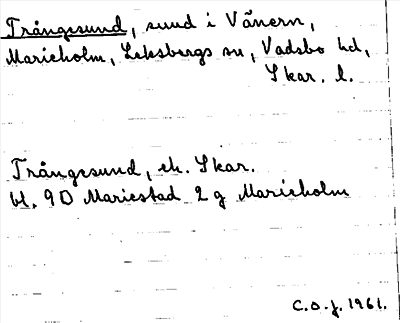 Trångesund, sund i Vänern,
Marieholm, Leksbergs sn, Vadsbo hd,
Skar. l.
Trångesund, ek. Skar.
bl. 9D Mariestad 2 g Marieholm
C.O.J. 1961.